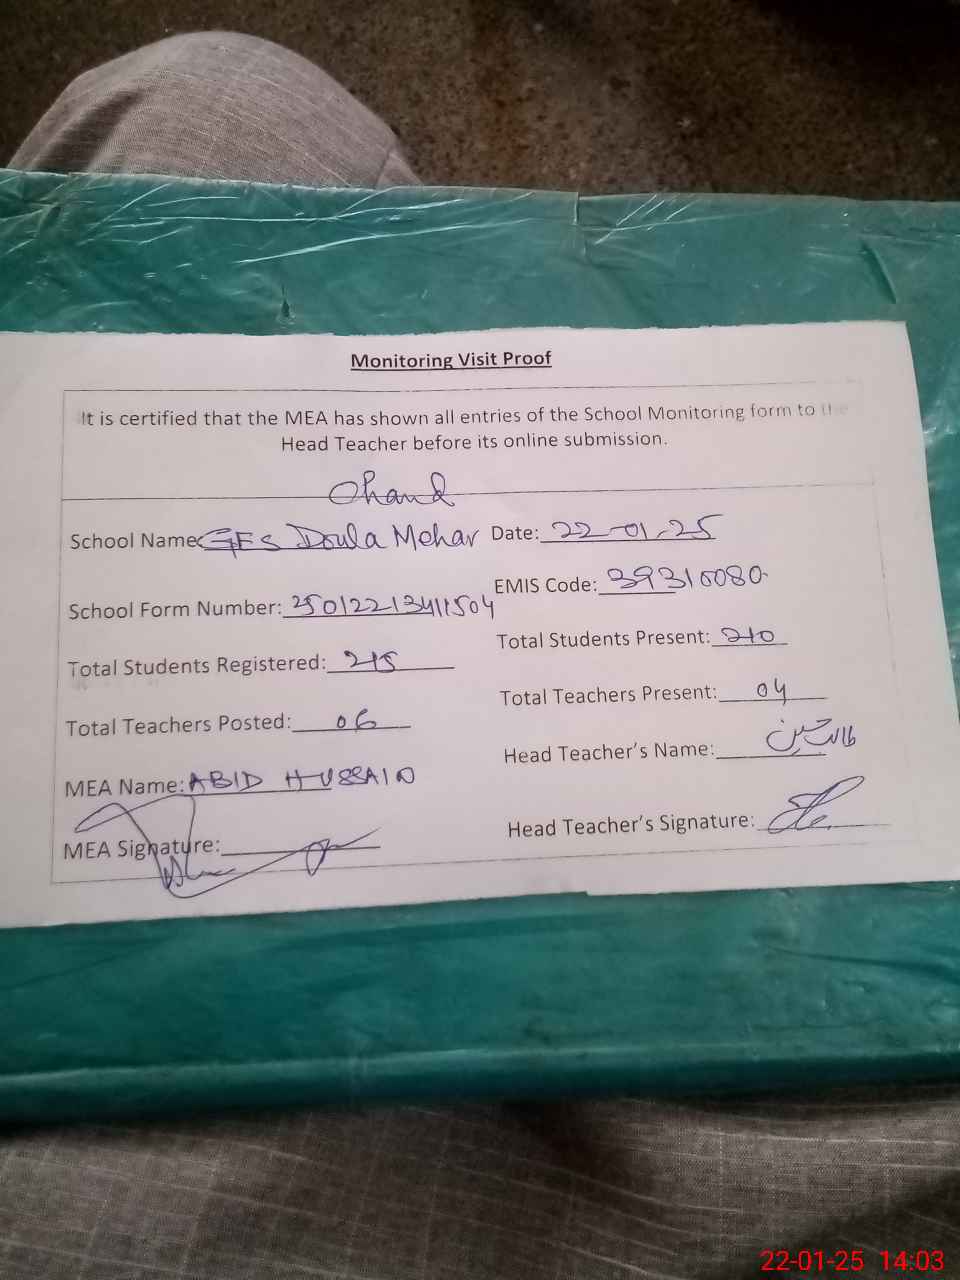 Monitoring Visit Proof
It is certified that the MEA has shown all entries of the School Monitoring form to the
Head Teacher before its online submission.
Chand
School Name: GES Doula Mehar Date: 22-01-25
EMIS Code: 39310080
School Form Number: 25012213411504
Total Students Present: 210
Total Students Registered: 215
Total Teachers Present: 04
Total Teachers Posted: 06
Head Teacher's Name: طالب حسین
MEA Name: ABID HUSSAIN
Head Teacher's Signature:
MEA Signature:
22-01-25 14:03